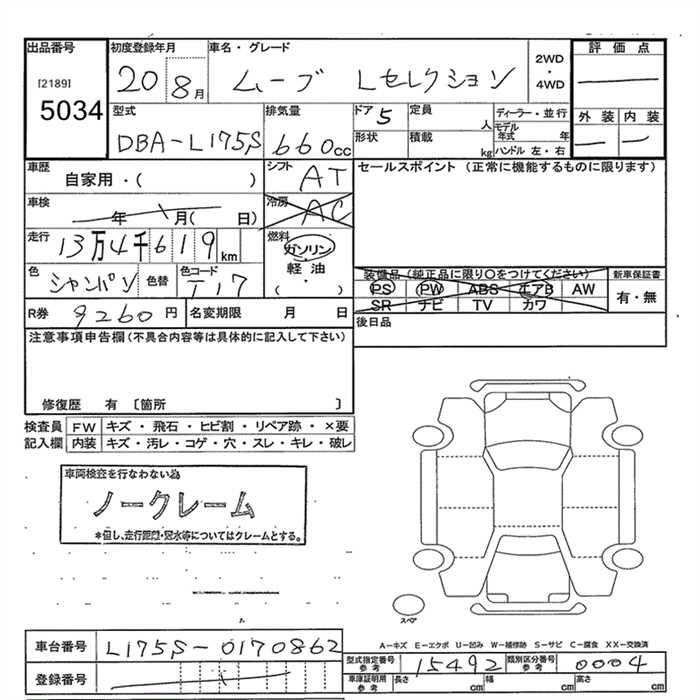 出品番号 初度登録年月 車名・グレード 評価点
[2189] 20 8月 ムーブ Lセレクション 2WD ・ 4WD
5034
型式 排気量 ドア 5 定員 人 ディーラー・並行 外装 内装
DBA-L175S 660cc 形状 積載 kg モデル年式 年
ハンドル 左・右
車歴 自家用・( ) シフト AT セールスポイント (正常に機能するものに限ります)
車検 年 月( 日) 冷房 AC
走行 13万4千619km 燃料 ガソリン 軽油 ( ・ )
色 シャンパン 色替 色コード T17 装備品 (純正品に限り○をつけてください) 新車保証書
PS PW ABS エアB AW 有・無
SR ナビ TV カワ
R券 9260円 名変期限 月 日 後日品
注意事項申告欄(不具合内容等は具体的に記入して下さい)
修復歴 有 〔箇所 〕
検査員 FW キズ・飛石・ヒビ割・リペア跡・×要
記入欄 内装 キズ・汚レ・コゲ・穴・スレ・キレ・破レ
車両検査を行なわない為
ノークレーム
*但し、走行距離・冠水等についてはクレームとする。
スペア
A-キズ E-エクボ U-凹み W-補修跡 S-サビ C-腐食 XX-交換済
車台番号 L175S-0170862 型式指定番号 参考 15492 類別区分番号 参考 0004
登録番号 車庫証明用 参考 長さ cm 幅 cm 高さ cm